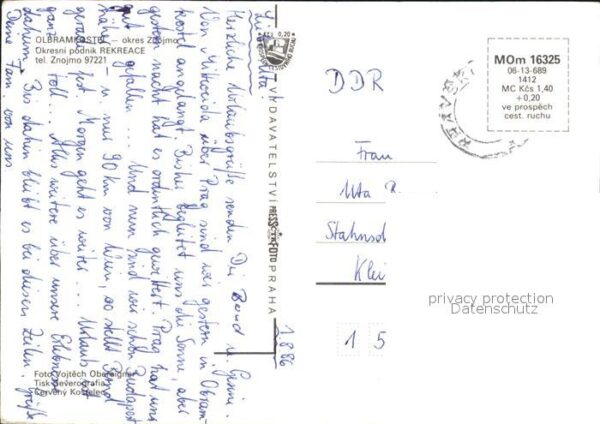 OLBRAMKOSTEL – okres Znojmo
Okresní podnik REKREACE
tel. Znojmo 97221
Liebe Uta!
Herzliche Urlaubsgrüße senden Dir Bernd u.
Von über Prag sind wir gestern in Olbram-
angelangt. Bisher begleitet uns die Sonne, aber
gestern nacht hat es ordentlich gewittert. Prag hat uns
gut gefallen... Und nun sind wir schon
näher - nur 90 km von Wien, so stellt Bernd
gerade fest. Morgen geht es weiter... Urlaub ist
ganz toll... Alles weitere über unsere Erlebnisse
daheim. Bis dahin bleibt es bei diesen Zeilen. Grüße
Deine Fam. von uns
1.8.86
Foto Vojtěch Obereigner
Tisk Severografia
Červený Kostelec
Kčs 0,20
VYDAVATELSTVÍ PRESSFOTO PRAHA
DDR
MOm 16325
06-13-689
1412
MC Kčs 1,40
+0,20
ve prospěch
cest. ruchu
Frau
Uta R
Stahnsd
Klei
1 5
privacy protection
Datenschutz